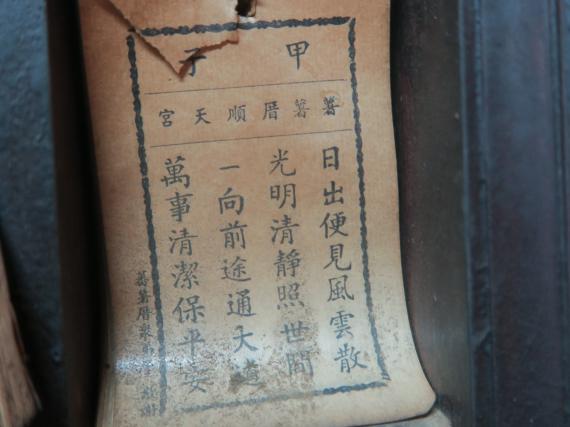 甲子
蕃薯厝順天宮
日出便見風雲散
光明清靜照世間
一向前途通大道
萬事清潔保平安
蕃薯厝眾